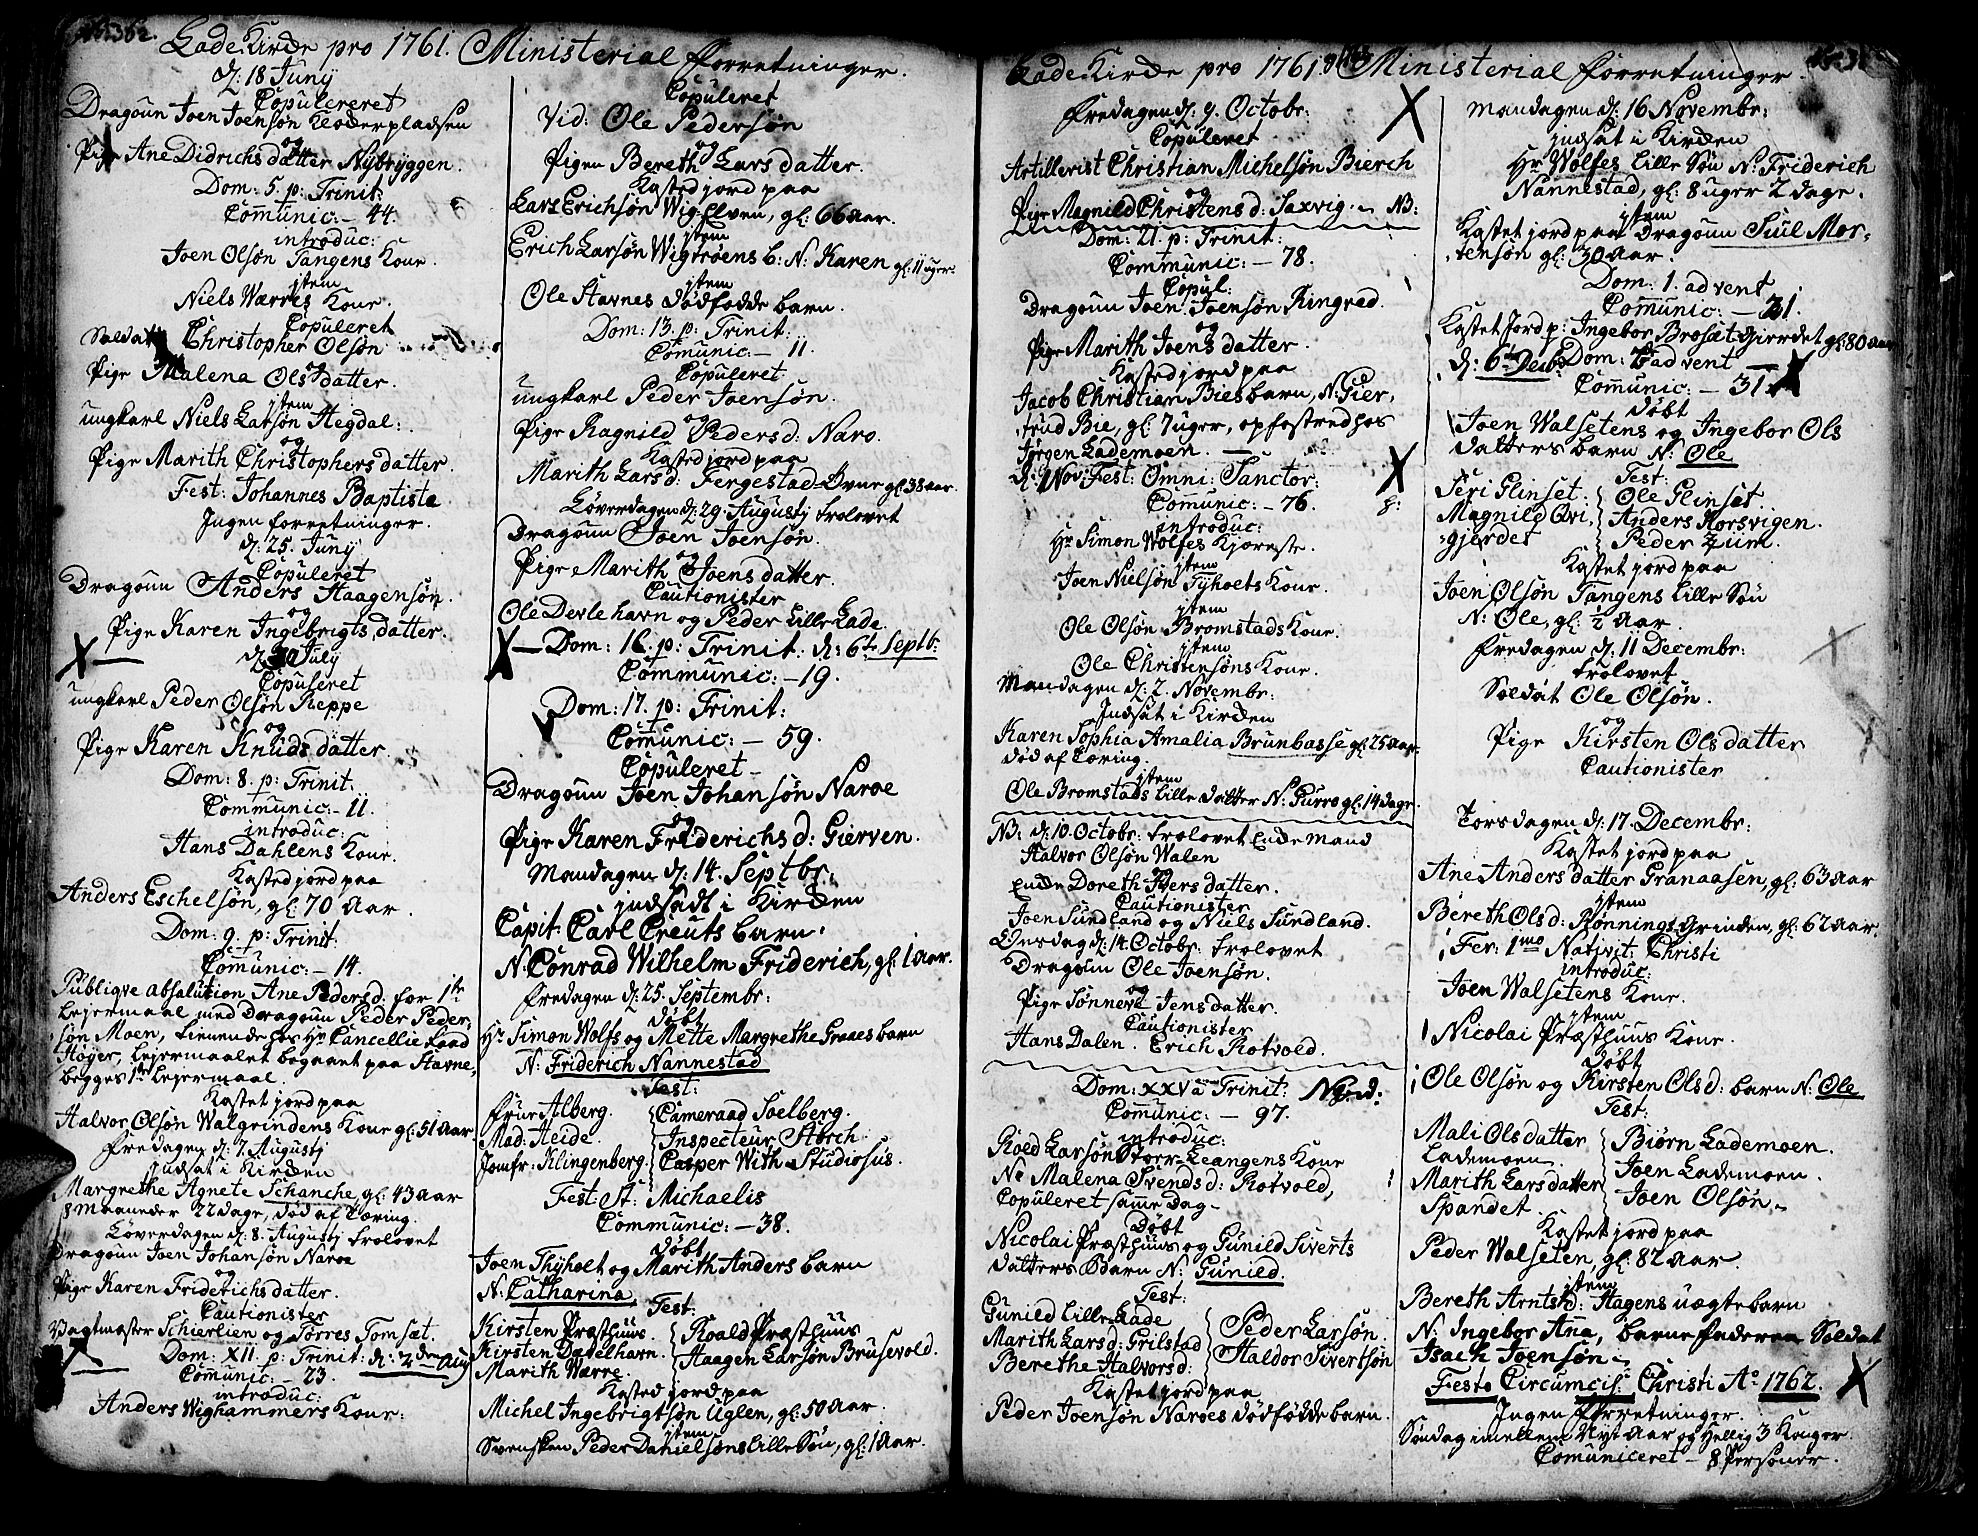 Lade Kirche pro 1761. Ministerial forretninger.
d: 18 Juny
Copulereret
Dragoun Joen Joensøn Kloderpladsen
og
Pige Ane Didrichs datter Nybryggen.
Dom: 5. p: Trinit:
Com̄unic: - 44.
introduc:
Joen Olsøn Tangens Kone.
jtem
Niels Wærres Kone.
Copuleret
Soldat Christopher Olsøn
og
Pige Malena Ols datter.
jtem
ungkarl Niels Larsøn Hegdal:
og
Pige Marith Christophers datter.
Fest: Johannes Baptista
Ingen forretninger.
d: 25. Juny
Copuleret
Dragoun Anders Haagensøn.
og
Pige Karen Ingebrigts datter.
July
Copuleret
ungkarl Peder Olsøn Reppe
og
Pige Karen Knuds datter.
Dom: 8. p: Trinit:
Communic: - 11.
introduc:
Hans Dahlens Kone.
Kasted jord paa
Anders Eschelsøn, gl: 70 Aar.
Dom: 9. p: Trinit:
Com̄unic: - 14.
Publiqve absolution Ane Peders d: for 1te
Lejermaal med Dragoun Peder Peder-
søn Moen, tienende hos Hr Cancellie Raad
Høyer, Lejermaalet begaaet paa Stavne,
begges 1te Lejermaal.
Kastet jord paa
Halvor Olsøn Walgrindens Kone gl: 51 Aar
Fredagen d: 7. Augustj
Indsat i Kircken
Margrethe Agnete Schanche, gl: 43 Aar
8 Maaneder 22 dage, død af Tæring.
Løverdagen d: 8. Augustj trolovet
Dragoun Joen Johansøn Naroe
og
Pige Karen Friderichs datter.
Cautionister
Vagtmæster Schierlien og Torres Tomsæt.
Dom: XII. p: Trinit: d: 2den Aug
Com̄unic: - 23.
introduc:
Anders Wighammers Kone:
Copuleret
Vid: Ole Pedersøn
og
Pigen Bereth Lars datter.
Kasted jord paa
Lars Erichsøn Wig Elven, gl: 66 Aar.
jtem
Erich Larsøn Wigtrøens b: N: Karen gl: 11 uger.
jtem
Ole Stavnes dødfødde barn.
Dom: 13. p: Trinit:
Com̄unic: - 11.
Copuleret
ungkarl Peder Joensøn.
og
Pige Ragnild Peders d: Naro.
Kasted jord paa
Marith Lars d: Fergestad-Øvne gl: 38 aar.
Løverdagen d: 29. Augustj trolovet
Dragoun Joen Joensøn.
og
Pige Marith Joens datter.
Cautionister
Ole Devlehavn og Peder Lille Lade.
Dom: 16. p: Trinit: d: 6te Septb:
Com̄unic: - 19.
Dom: 17. p: Trinit:
Com̄unic: - 59.
Copuleret -
Dragoun Joen Johansøn Naroe
og
Pige Karen Friderichs d: Gierven.
Mandagen d: 14. Septbr:
jndsadt i Kircken
Capit: Carl Creuts barn
N: Conrad Wilhelm Friderich, gl: 1 Aar.
Fredagen d: 25. Septembr:
døbt
Hr Simon Wolfs og Mette Margrethe Graaes barn
N: Friderich Nannestad
Test:
Frue Alberg. Cameraad Soelberg.
Mad: Heide. Inspecteur Storch
Jomfr: Klingenberg. Casper With Studiosus.
Fest: St: Michaelis
Com̄unic: - 38.
døbt
Joen Thyholt og Marith Anders barn
N: Catharina
Test:
Kirsten Præsthuus. Roald Præsthuus
Kirsten Davelhavn. Haagen Larsøn Brusevold.
Marith Wærre.
Kasted jord paa
Michel Ingebrigtsøn Uglen, gl: 50 Aar.
jtem
Svensken Peder Danielsøns lille Søn, gl: 1 Aar.
Lade Kirche pro 1761 Ministerial forretninger.
Fredagen d: 9. Octobr:
Copuleret
Artillerist Christian Michelsøn Bierch
og
Pige Magnild Christens d: Saxvig. N3:
Dom: 21. p: Trinit:
Com̄unic: - 78.
Copul:
Dragoun Joen Joensøn Ringved.
og
Pige Marith Joens datter.
Kasted jord paa
Jacob Christian Bies barn, N: Gier-
trud Bie, gl: 7 uger, opfostred hos
Jørgen Lademoen.
d: 1 Nov: Fest: Omni: Sanctor:
Com̄unic: - 76.
introduc:
Hr Simon Wolfes Kjæreste.
jtem
Joen Nielsøn Tyholts Kone.
jtem
Ole Olsøn Bromstads Kone.
jtem
Ole Christensøns Kone.
Mandagen d: 2. Novembr:
Indsat i Kircken
Karen Sophia Amalia Brunbasse gl: 25 Aar
død af Tæring.
jtem
Ole Bromstads lille datter N: Gurro gl: 14 dage.
N3: d: 10. Octobr: trolovet Enckemand
Halvor Olsøn Walen
og
Encke Doreth Ivers datter.
Cautionister
Joen Sundland og Niels Sundland.
Onsdag d: 14. Octobr: trolovet
Dragoun Ole Joensøn.
og
Pige Sønneve Jens datter.
Cautionister
Hans Dalen. Erich Rotvold.
Dom: XXV a Trinit:
Com̄unic: - 97.
introduc:
Roeld Larsøn Storr-Leangens Kone
Ne Malena Svends d: Rotvold,
Copuleret sam̄e Dag.
Døbt
Nicolai Præsthuus og Gunild Siverts
datters Barn N: Gunild.
Test:
Gunild Lille Lade Peder Larsøn.
Marith Lars d: Grilstad Haldor Sivertsøn
Berethe Halvors d:
Kastet jord paa
Peder Joensøn Naroes dødfødde barn.
Mandagen d: 16 Novembr:
jndsat i Kircken
Hr Wolfes Lille Søn N: Friderich
Nannestad, gl: 8 uger 2 dage.
jtem
Kastet jord paa Dragoun Siul Mor-
tensøn gl: 30 Aar.
Dom: 1. advent
Com̄unic: - 21.
Kastet Jord p: Ingebor Brosæt-Gierdet gl: 80 aar
d: 6te Decbr Dom: advent
Com̄unic: - 31.
døbt
Joen Walsetens og Ingebor Ols
datters barn N: Ole
Test:
Siri Glinset. Ole Glinset.
Magnild Qvi- Anders Korsvigen.
gjerdet Peder Zum.
Kastet jord paa
Joen Olsøn Tangens Lille Søn
N: Ole, gl: ½ Aar.
Fredagen d: 11 Decembr:
trolovet
Soldat Ole Olsøn.
og
Pige Kirsten Ols datter
Cautionister
Torsdagen d: 17. Decembr:
Kastet jord paa
Ane Anders datter Granaasen, gl: 63 Aar
jtem
Bereth Ols d: Rønnings Grinden, gl: 62 Aar
Fer: 1mo Nativit: Christi
introduc:
Joen Walsetens Kone.
jtem
Nicolai Præsthuus Kone.
Døbt
Ole Olsøn og Kirsten Ols d: barn N: Ole
Test:
Mali Ols datter Biørn Lademoen.
Lademoen. Joen Lademoen.
Marith Lars datter Joen Olsøn.
Spandet.
Kastet jord paa
Peder Walseten, gl: 82 Aar.
jtem
Bereth Arnts d: Hagens uægte barn
N: Ingebor Ana, barnefaderen Soldat
Isach Joensøn
Festo Circumcis: Christi Ao 1762.
Ingen forretninger.
Søndag imellem Nyt Aar og Hellig 3 Konger
Com̄uniceret - 8 Personer.